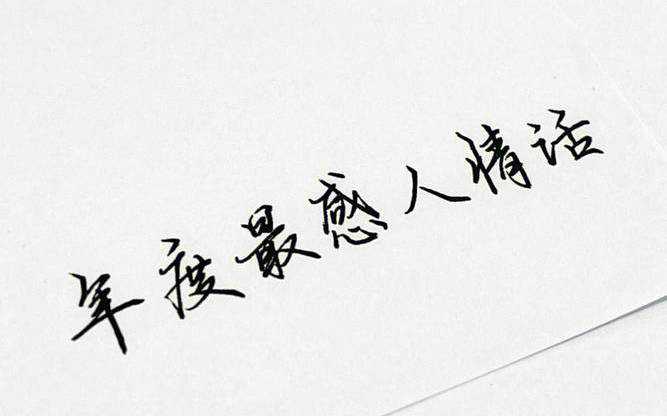 年度最感人情话